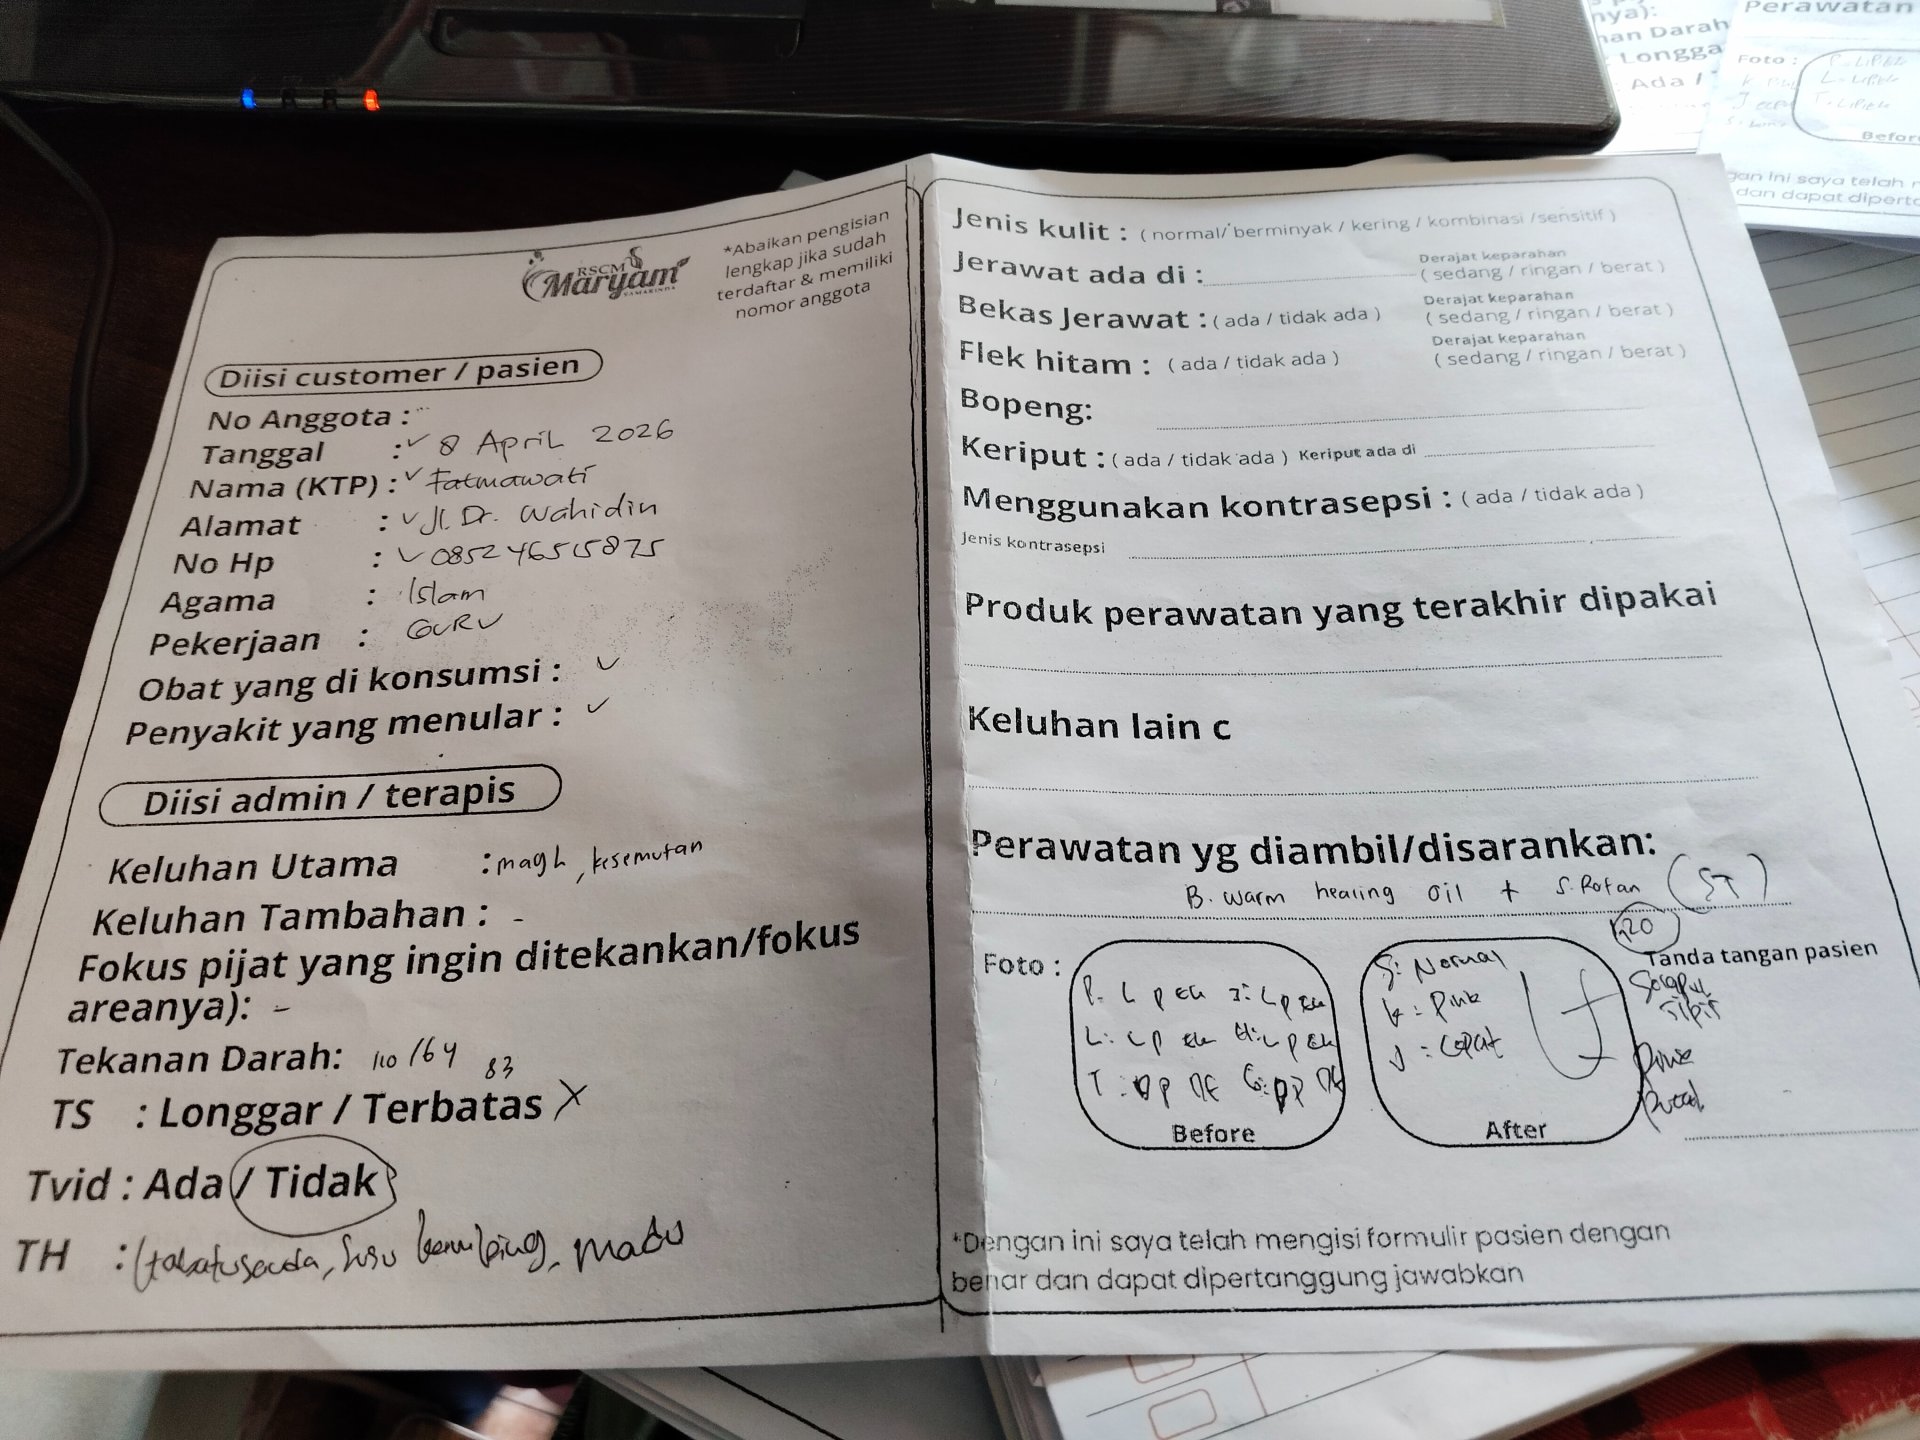 RSCM
Maryam
SAMARINDA
*Abaikan pengisian
lengkap jika sudah
terdaftar & memiliki
nomor anggota
Diisi customer / pasien
No Anggota :
Tanggal : 8 April 2026
Nama (KTP) : Fatmawati
Alamat : Jl. Dr. Wahidin
No Hp : 085246515875
Agama : Islam
Pekerjaan : GURU
Obat yang di konsumsi :
Penyakit yang menular :
Diisi admin / terapis
Keluhan Utama : magh, kesemutan
Keluhan Tambahan : -
Fokus pijat yang ingin ditekankan/fokus
areanya): -
Tekanan Darah: 110/64 83
TS : Longgar / Terbatas
Tvid : Ada / Tidak
TH : susu kambing, madu
Jenis kulit : ( normal/ berminyak / kering / kombinasi /sensitif )
Jerawat ada di : Derajat keparahan ( sedang / ringan / berat )
Bekas Jerawat : ( ada / tidak ada ) Derajat keparahan ( sedang / ringan / berat )
Flek hitam : ( ada / tidak ada ) Derajat keparahan ( sedang / ringan / berat )
Bopeng:
Keriput : ( ada / tidak ada ) Keriput ada di
Menggunakan kontrasepsi : ( ada / tidak ada )
Jenis kontrasepsi
Produk perawatan yang terakhir dipakai
Keluhan lain c
Perawatan yg diambil/disarankan:
B. warm healing oil + S. Rotan (ST)
Foto :
Before
S: Normal
k: Pink
J: Cepat
After
Tanda tangan pasien
*Dengan ini saya telah mengisi formulir pasien dengan
benar dan dapat dipertanggung jawabkan
Perawatan
nya):
Darah
Longga
Ada /
Foto :
Before
gan ini saya telah
dan dapat diperta